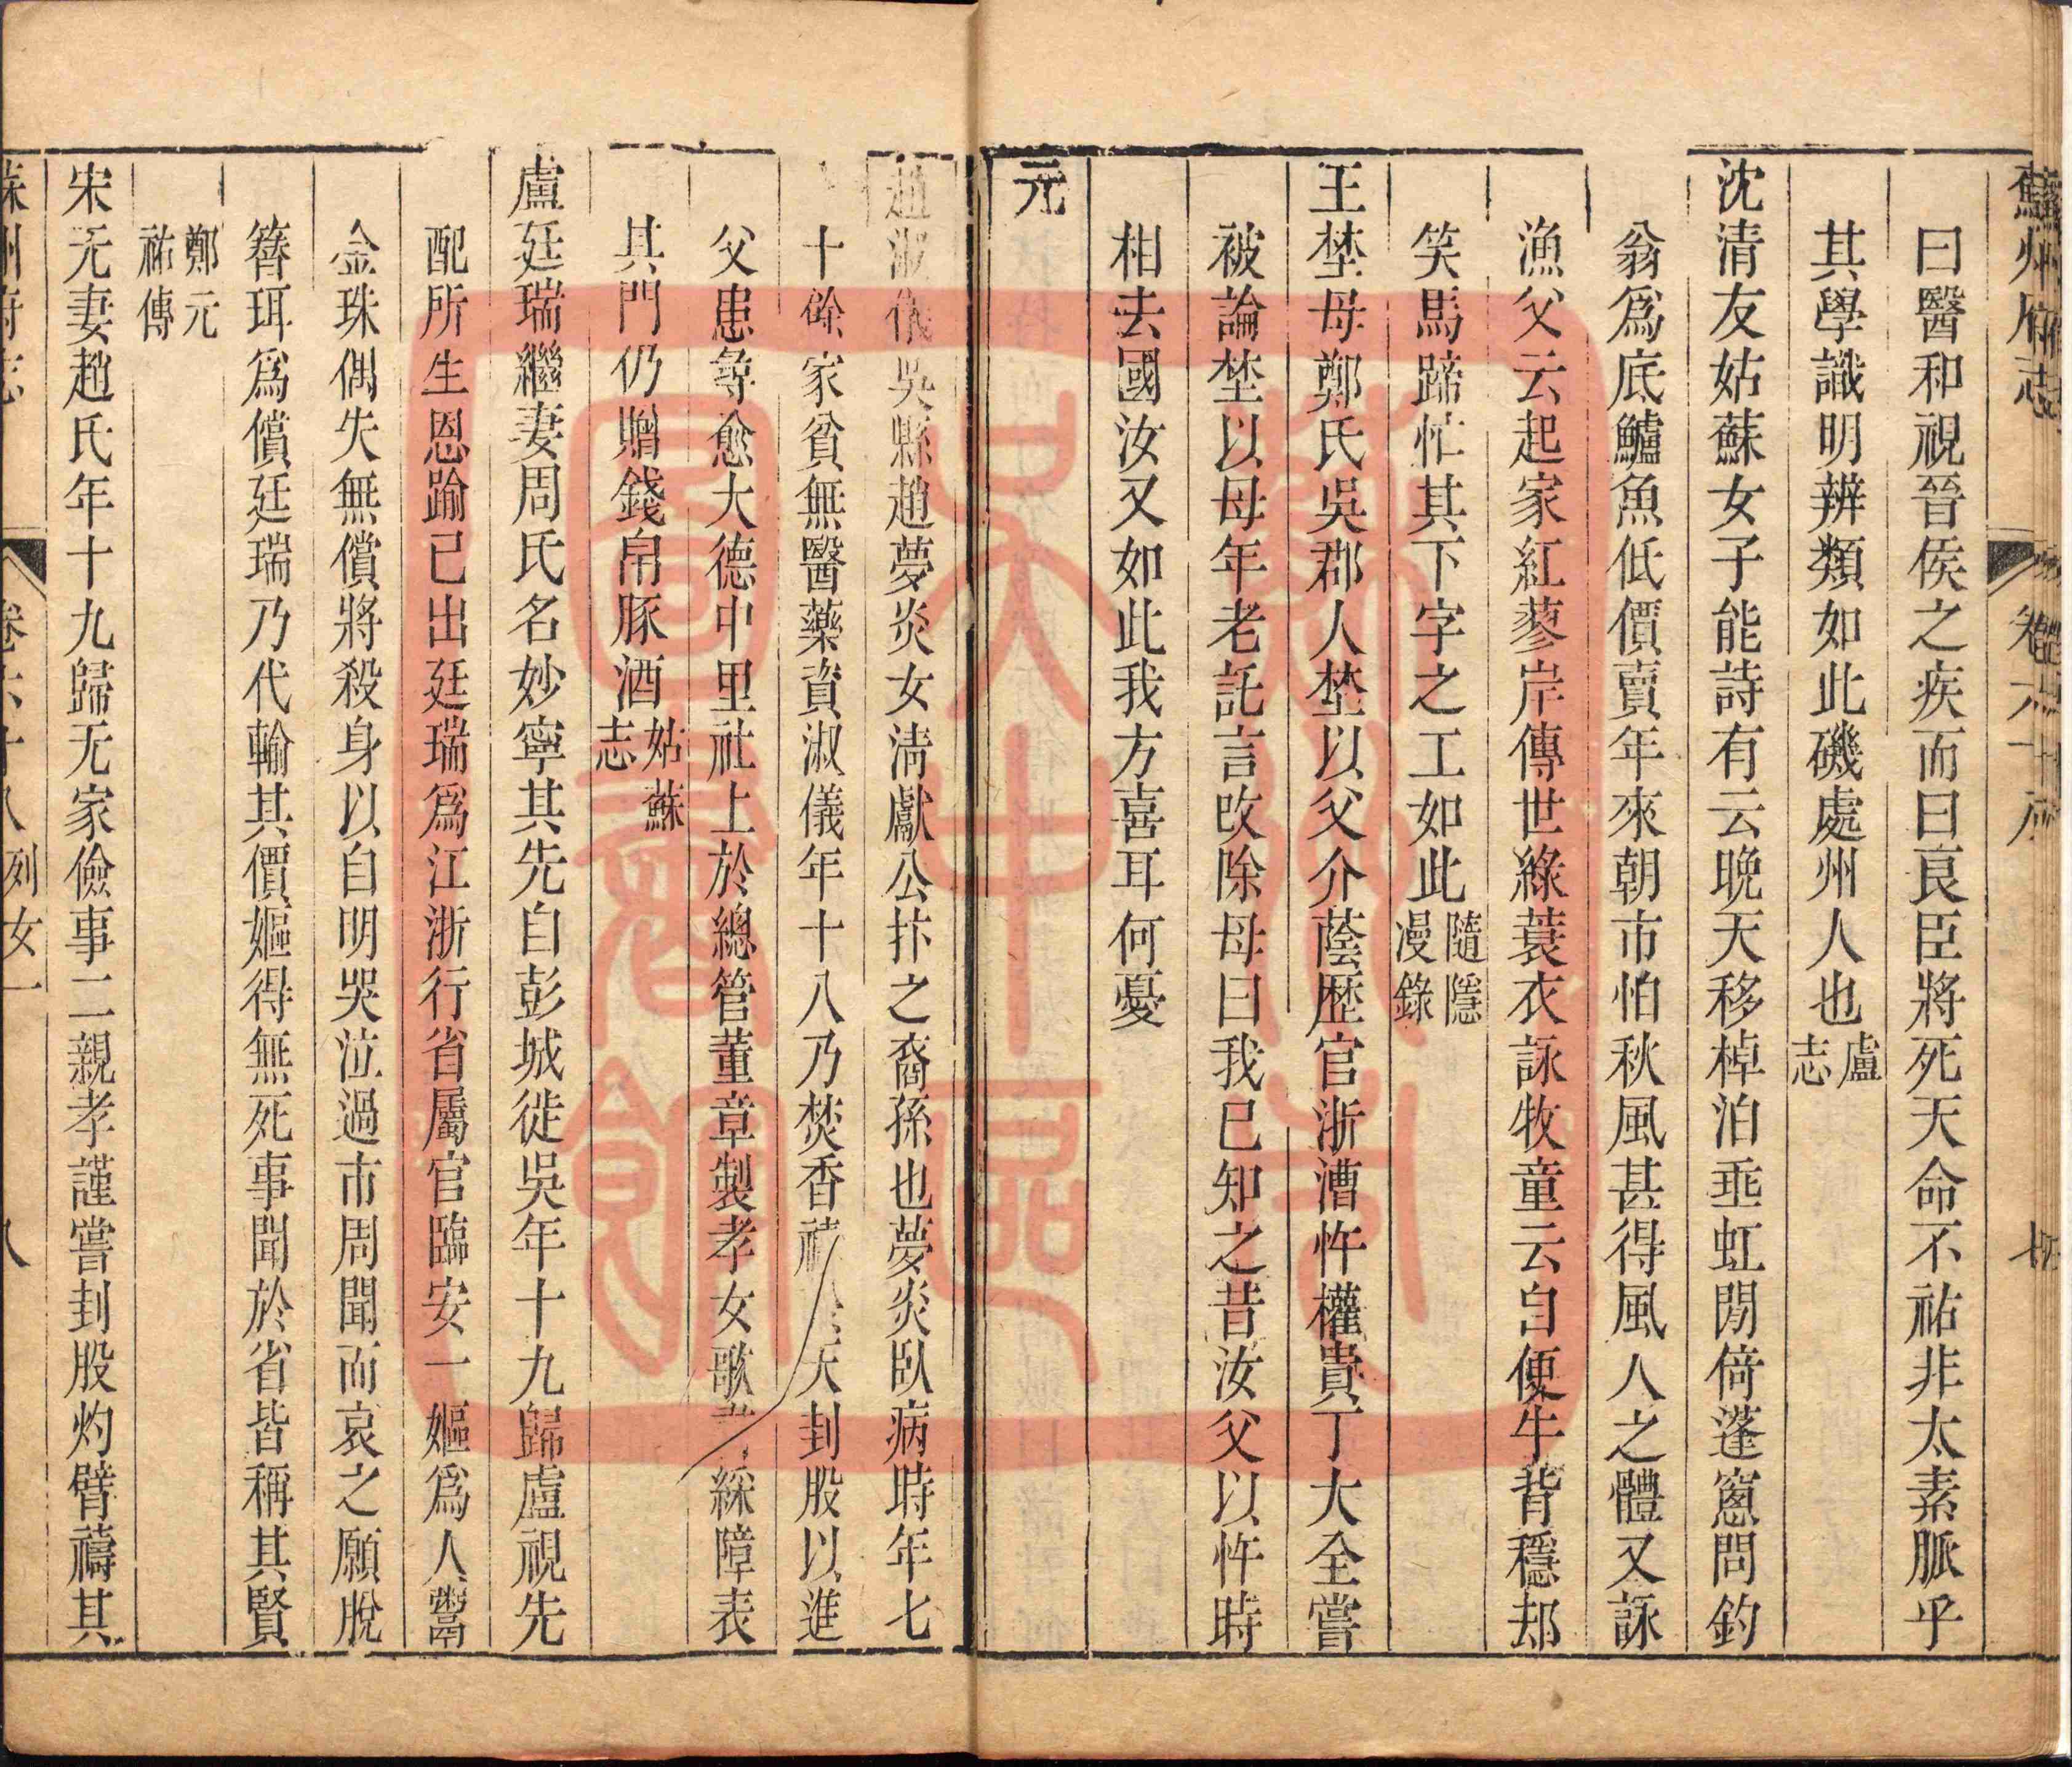 蘇州府志
曰醫和視晉侯之疾而曰良臣將死天命不祐非太素脈乎
其學識明辨類如此磯處州人也盧志
沈清友姑蘇女子能詩有云晚天移棹泊垂虹閒倚蓬窻問釣
翁爲底鱸魚低價賣年來朝市怕秋風甚得風人之體又詠
漁父云起家紅蓼岸傳世綠蓑衣詠牧童云自便牛背穩却
笑馬蹄忙其下字之工如此隨隱漫錄
王埜母鄭氏吳郡人埜以父介蔭歷官浙漕忤權貴丁大全嘗
被論埜以母年老託言改除母曰我已知之昔汝父以忤時
相去國汝又如此我方喜耳何憂
元
趙淑儀吳縣趙夢炎女清獻公抃之裔孫也夢炎臥病時年七
十餘家貧無醫藥資淑儀年十八乃焚香禱天封股以進
父患尋愈大德中里社上於總管董章製孝女歌綵障表
其門仍贈錢帛豚酒姑蘇志
盧廷瑞繼妻周氏名妙寧其先自彭城徙吳年十九歸盧視先
配所生恩踰己出廷瑞爲江浙行省屬官臨安一嫗爲人鬻
金珠偶失無償將殺身以自明哭泣過市周聞而哀之願脫
簪珥爲償廷瑞乃代輸其價嫗得無死事聞於省皆稱其賢
鄭元祐傳
宋无妻趙氏年十九歸无家儉事二親孝謹嘗封股灼臂禱其
蘇州府志 卷六十八列女一 八